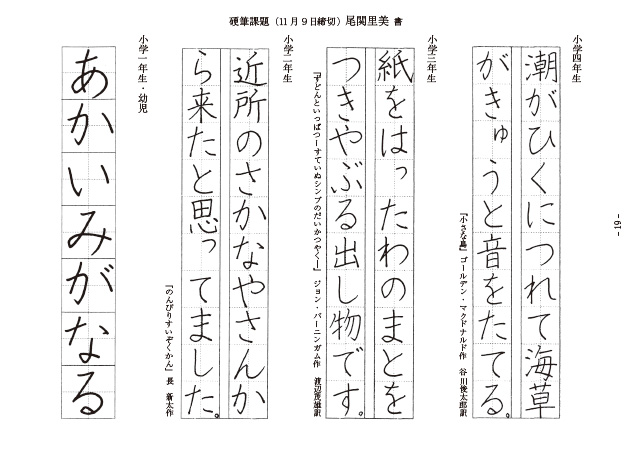 硬筆課題（11月9日締切）尾関里美 書
小学四年生
潮がひくにつれて海草
がきゅうと音をたてる。
『小さな島』ゴールデン・マクドナルド作 谷川俊太郎訳
小学三年生
紙をはったわのまとを
つきやぶる出し物です。
『ずどんといっぱつーすていぬシンプのだいかつやくー』ジョン・バーニンガム作 渡辺茂雄訳
小学二年生
近所のさかなやさんか
ら来たと思ってました。
『のんびりすいぞくかん』長 新太作
小学一年生・幼児
あかいみがなる
- 19 -